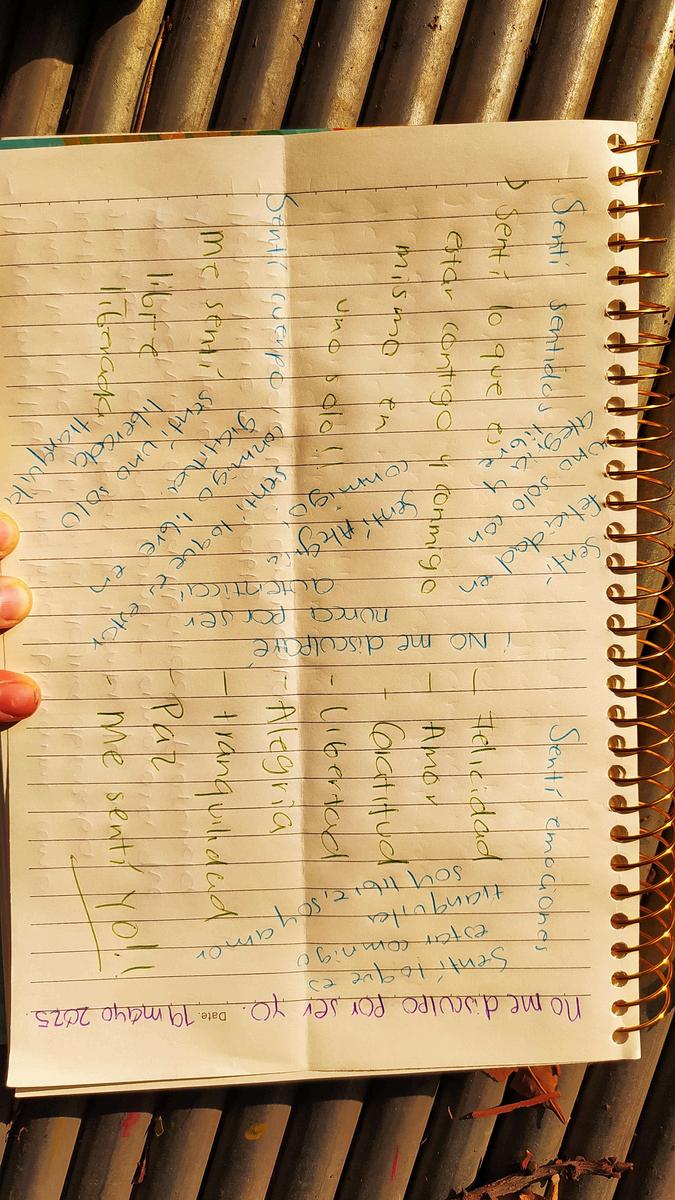 No me disculpo por ser yo. Date: 19 mayo 2025.
Sentí sentidos
> Sentí lo que es
estar contigo y conmigo
mismo en
uno solo!!
Sentí cuerpo
me sentí
libre
liberada
Sentí emociones
- Felicidad
- Amor
- Gratitud
- Libertad
- Alegría
- tranquilidad
- Paz
- Me sentí YO!!
Sentí lo que es
estar conmigo
tranquila
soy libre, soy amor
¡No me disculparé
nunca por ser
autentica!
Sentí
felicidad en
uno solo con
alegría y
libre
Sentí Alegría
conmigo,
sentí lo que es estar
conmigo libre en
gratitud
sentí uno solo
liberada
tranquila